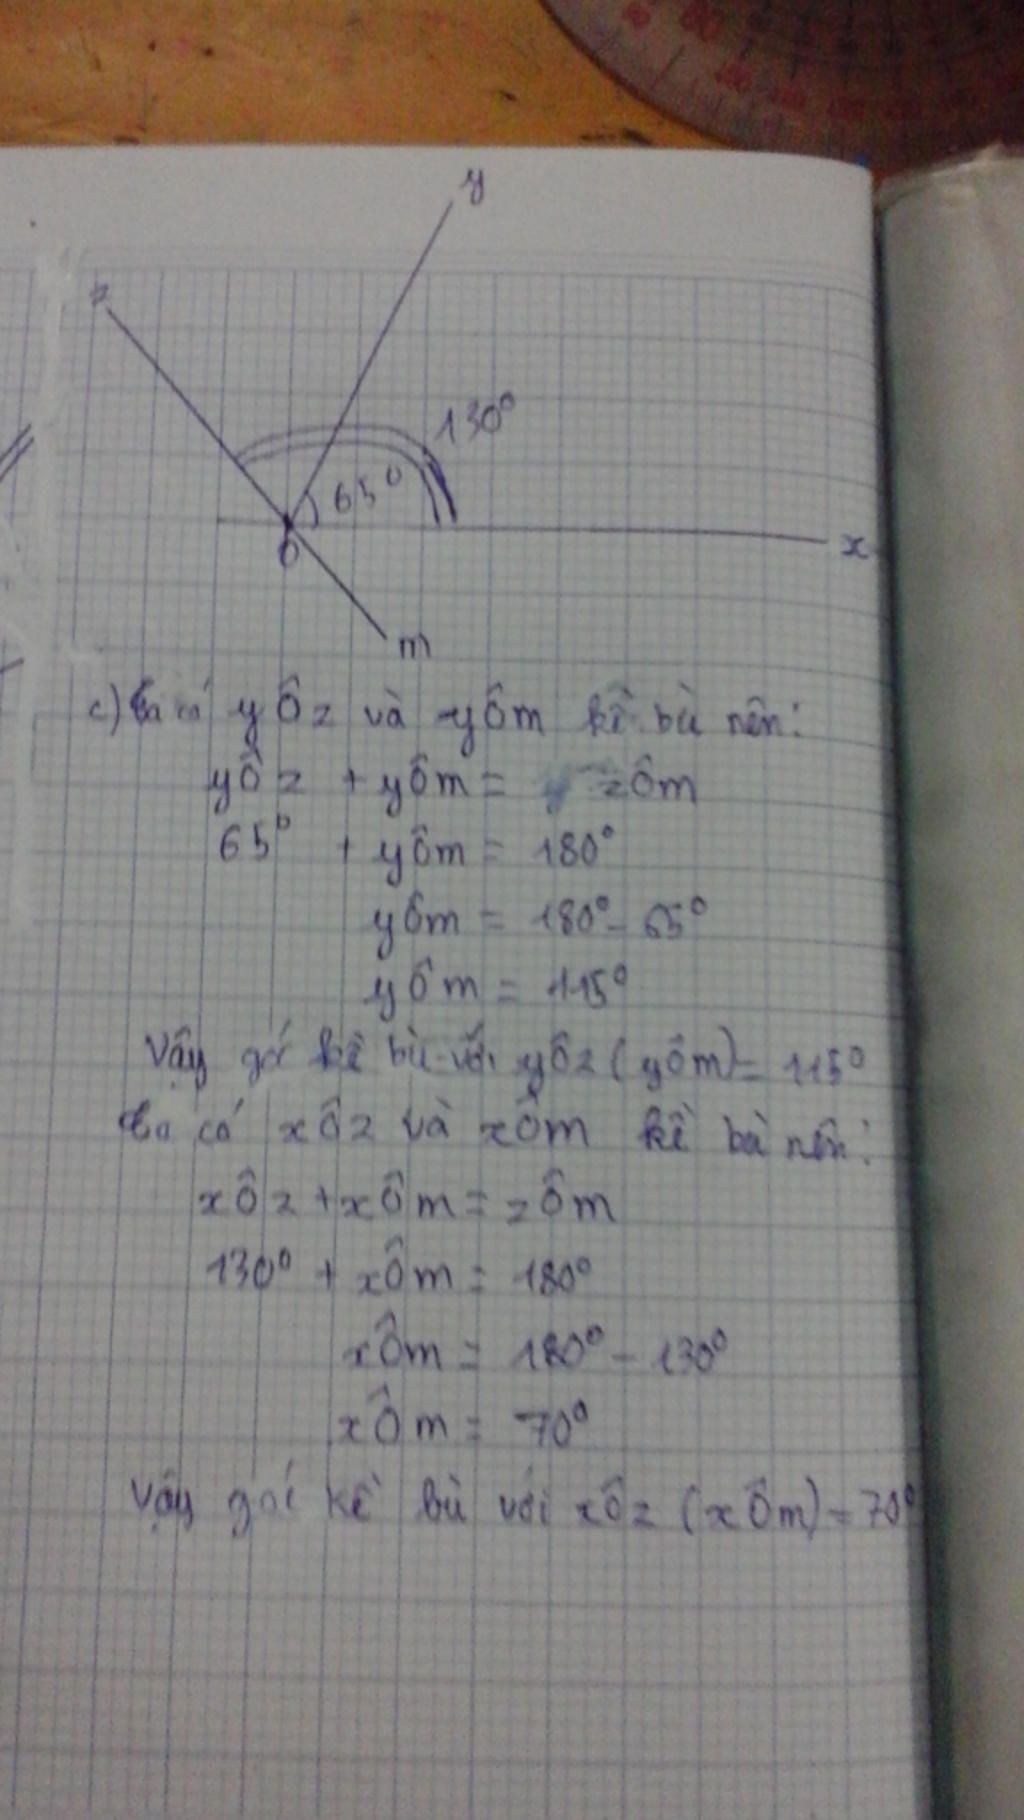 y
z
130°
65°
O
x
m
c) Ta có yÔz và yÔm kề bù nên:
yÔz + yÔm = zÔm
65° + yÔm = 180°
yÔm = 180° - 65°
yÔm = 115°
Vậy góc kề bù với yÔz (yÔm) = 115°
Ta có xÔz và xÔm kề bù nên:
xÔz + xÔm = zÔm
130° + xÔm = 180°
xÔm = 180° - 130°
xÔm = 70°
Vậy góc kề bù với xÔz (xÔm) = 70°